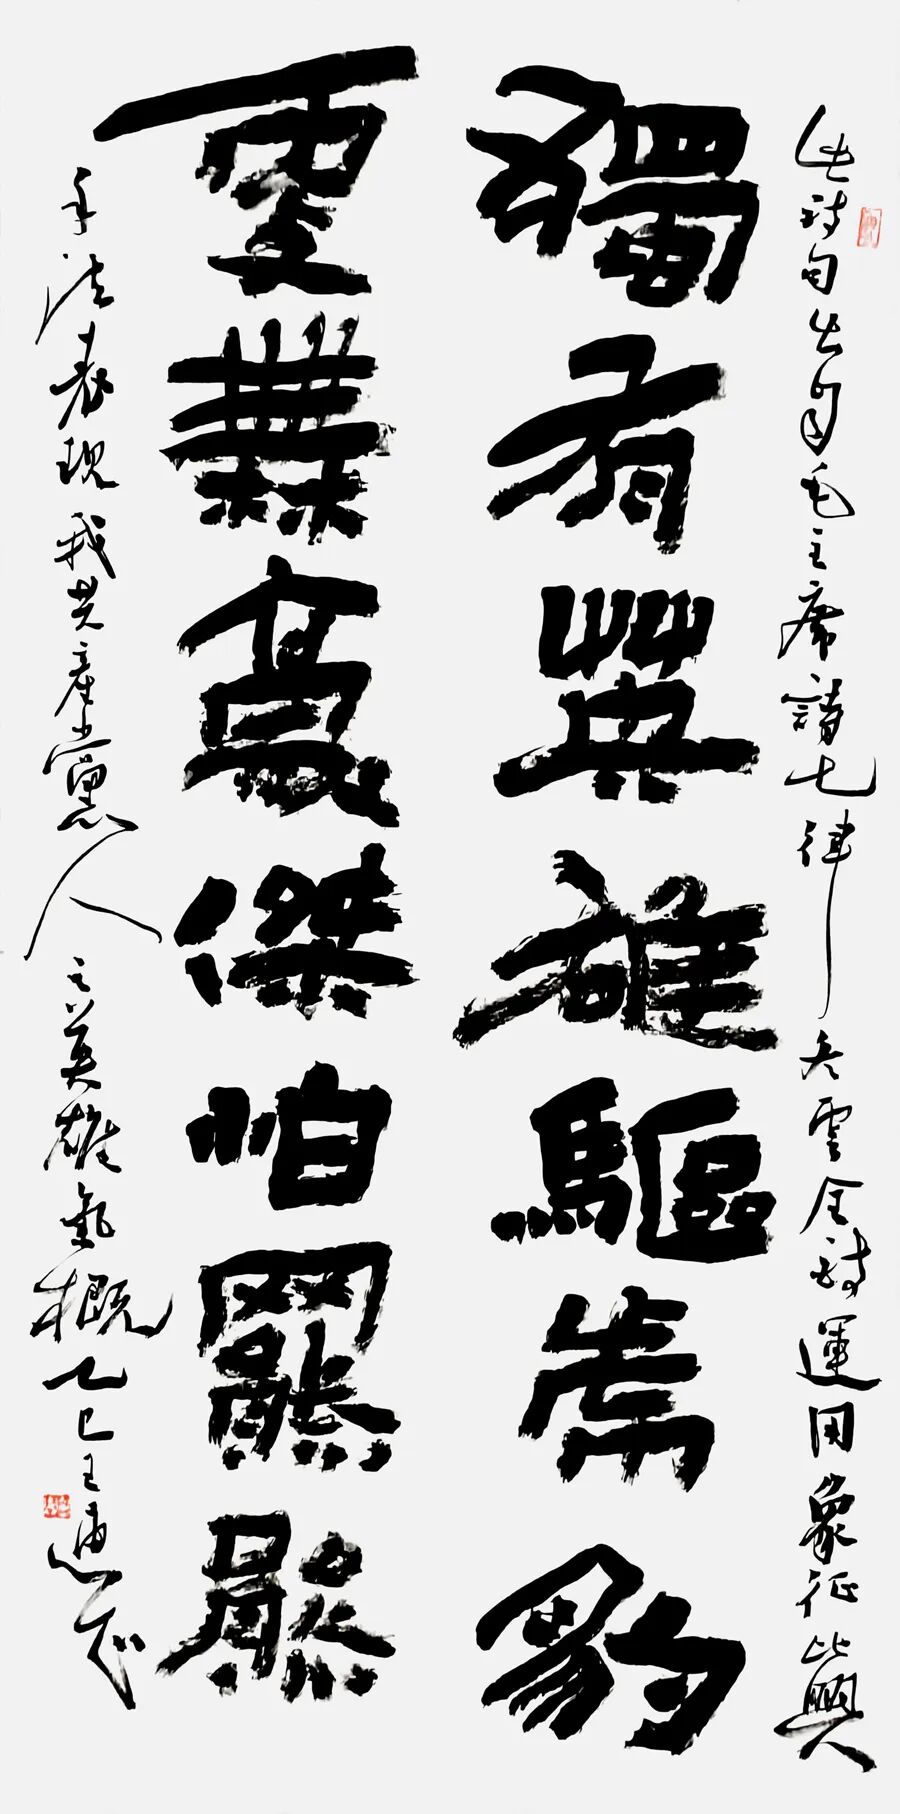 此詩句出自毛主席詩七律冬雲全詩運用象征比興
獨有英雄驅虎豹
更無豪傑怕羆熊
手法表現我共產黨人之英雄氣概乙巳王